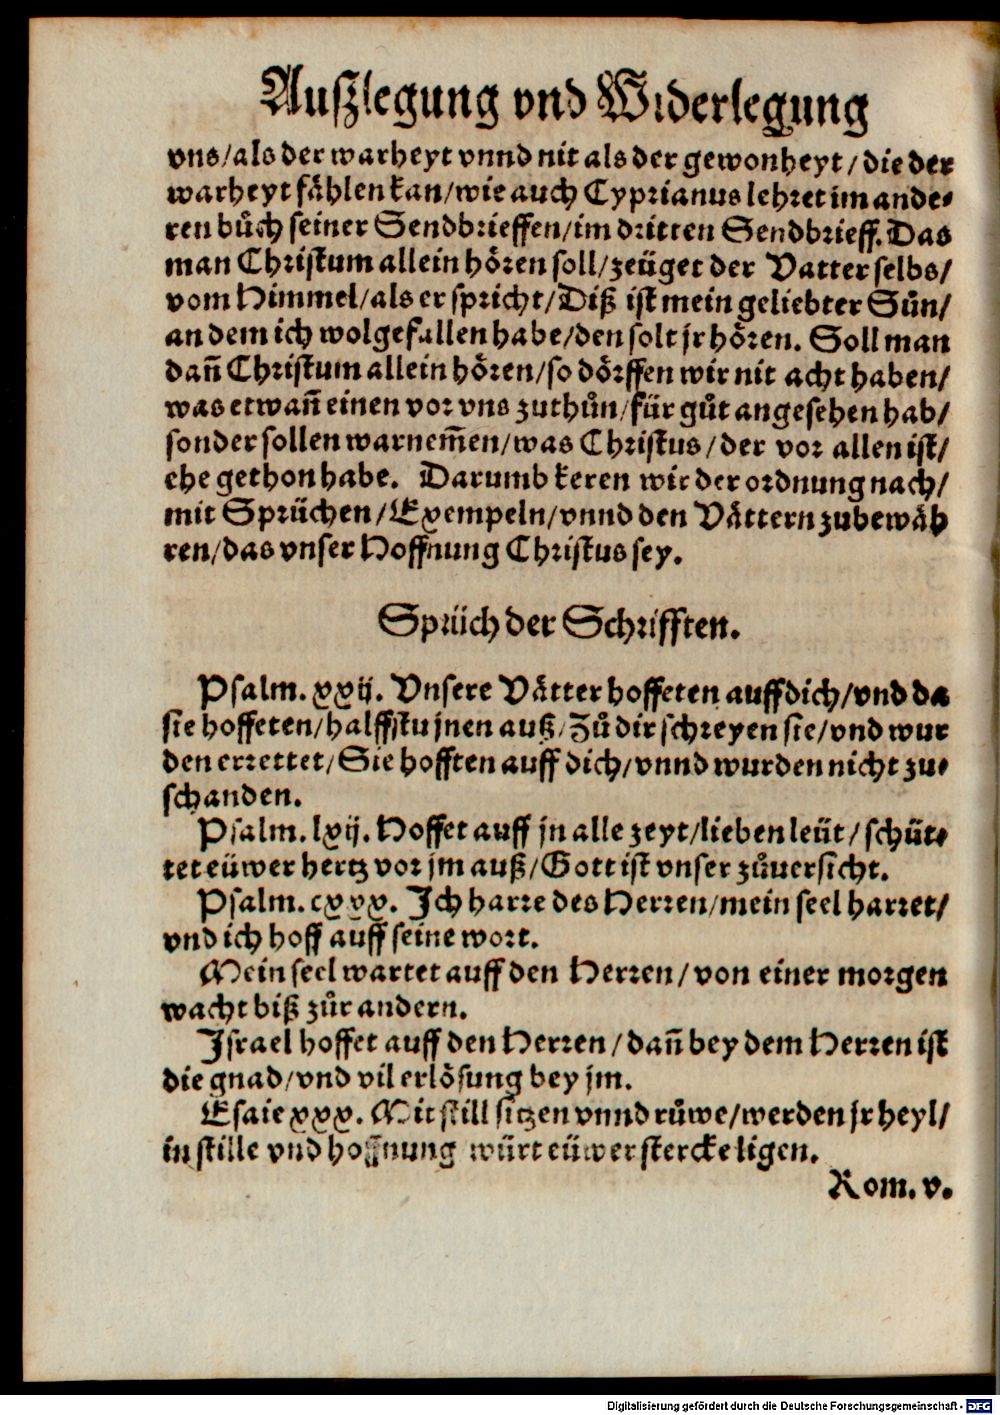 Auſzlegung vnd Widerlegung
vns/als der warheyt vnnd nit als der gewonheyt/die der
warheyt fählen kan/wie auch Cyprianus lehret im ande⸗
ren bůch seiner Sendbrieffen/im dritten Sendbrieff. Das
man Christum allein hören soll/zeüget der Vatter selbs/
vom Himmel/als er spricht/Diß ist mein geliebter Sůn/
an dem ich wolgefallen habe/den solt jr hören. Soll man
dañ Christum allein hören/so dörffen wir nit acht haben/
was etwañ einen vor vns zuthůn/für gůt angesehen hab/
sonder sollen warnem̃en/was Christus/der vor allen ist/
ehe gethon habe. Darumb keren wir der ordnung nach/
mit Sprüchen/Exempeln/vnnd den Vättern zubewäh
ren/das vnser Hoffnung Christus sey.
Sprüch der Schrifften.
Psalm. xxij. Vnsere Vätter hoffeten auff dich/vnd da
sie hoffeten/halffstu jnen auß/Zů dir schreyen sie/vnd wur
den errettet/Sie hofften auff dich/vnnd wurden nicht zu⸗
schanden.
Psalm. lxij. Hoffet auff jn alle zeyt/lieben leüt/schüt⸗
tet eüwer hertz vor jm auß/Gott ist vnser zůuersicht.
Psalm. cxxx. Ich harre des Herren/mein seel harret/
vnd ich hoff auff seine wort.
Mein seel wartet auff den Herren/von einer morgen
wacht biß zůr andern.
Israel hoffet auff den Herren/dañ bey dem Herren ist
die gnad/vnd vil erlösung bey jm.
Esaie xxx. Mit still sitzen vnnd růwe/werden jr heyl/
in stille vnd hoffnung würt eüwer stercke ligen.
Rom. v.
Digitalisierung gefördert durch die Deutsche Forschungsgemeinschaft - DFG